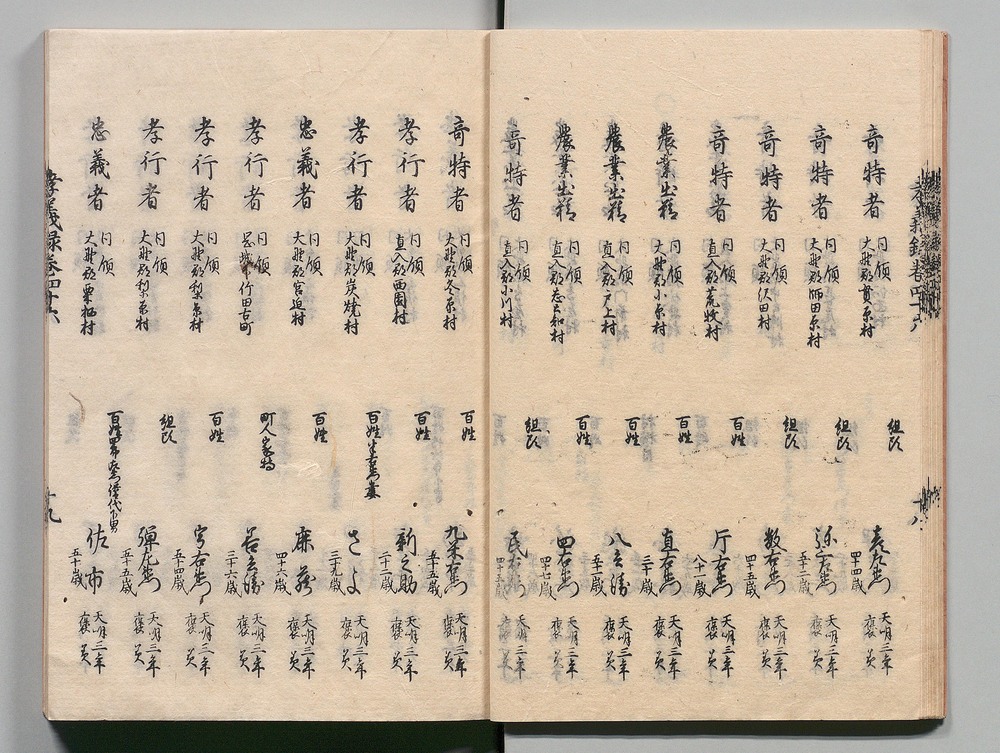 奇特者 同領 大野郡貫原村 組頭 四十四歳 天明三年 褒美
奇特者 同領 大野郡師田原村 組頭 弥右衛門 五十二歳 天明三年 褒美
奇特者 同領 大野郡沢田村 組頭 数右衛門 四十五歳 天明三年 褒美
奇特者 同領 直入郡荒牧村 百姓 庁右衛門 八十一歳 天明三年 褒美
農業出精 同領 大野郡小原村 百姓 直右衛門 三十歳 天明三年 褒美
農業出精 同領 直入郡戸上村 百姓 八三郎 五十歳 天明三年 褒美
農業出精 同領 直入郡志土知村 百姓 四右衛門 四十七歳 天明三年 褒美
奇特者 同領 直入郡小川村 組頭 民右衛門 四十五歳 天明三年 褒美
奇特者 同領 大野郡冬原村 百姓 九米右衛門 五十五歳 天明三年 褒美
孝行者 同領 直入郡西園村 百姓 新之助 二十二歳 天明三年 褒美
孝行者 同領 大野郡炭焼村 百姓 半右衛門妻 さよ 三十九歳 天明三年 褒美
忠義者 同領 大野郡宮迫村 百姓 麻蔵 四十六歳 天明三年 褒美
孝行者 同領 竹田古町 町人 家持 三十六歳 天明三年 褒美
孝行者 同領 大野郡梨原村 百姓 宇右衛門 五十四歳 天明三年 褒美
孝行者 同領 大野郡梨小原村 組頭 弾左衛門 五十五歳 天明三年 褒美
忠義者 同領 大野郡栗栖村 百姓 譜代下男 佐市 五十歳 天明三年 褒美
孝義録巻四十六
十九